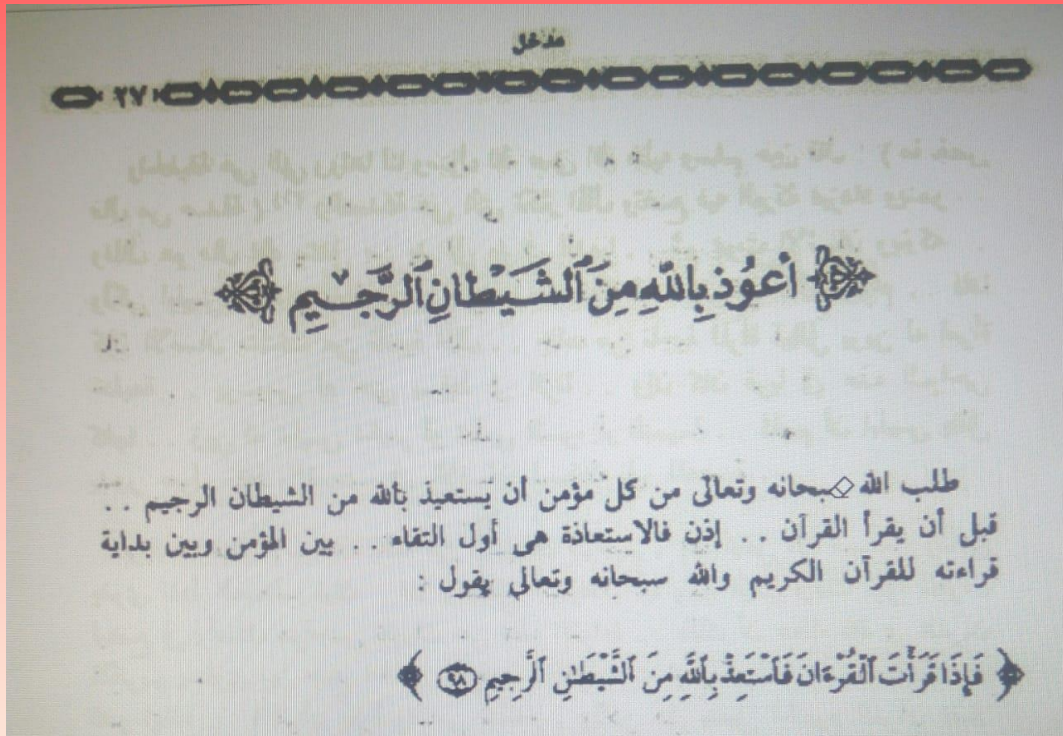 مدخل
٢٧
أعوُذ بِاللهِ مِنَ ٱلشَّيْطانِ ٱلرَّجِيمِ
طلب الله سبحانه وتعالى من كل مؤمن أن يستعيذ بالله من الشيطان الرجيم . .
قبل أن يقرأ القرآن . . إذن فالاستعاذة هى أول التقاء . . بين المؤمن وبين بداية
قراءته للقرآن الكريم والله سبحانه وتعالى يقول :
﴿ فَإِذَا قَرَأْتَ ٱلْقُرْءَانَ فَٱسْتَعِذْ بِٱللَّهِ مِنَ ٱلشَّيْطَٰنِ ٱلرَّجِيمِ ٩٨ ﴾